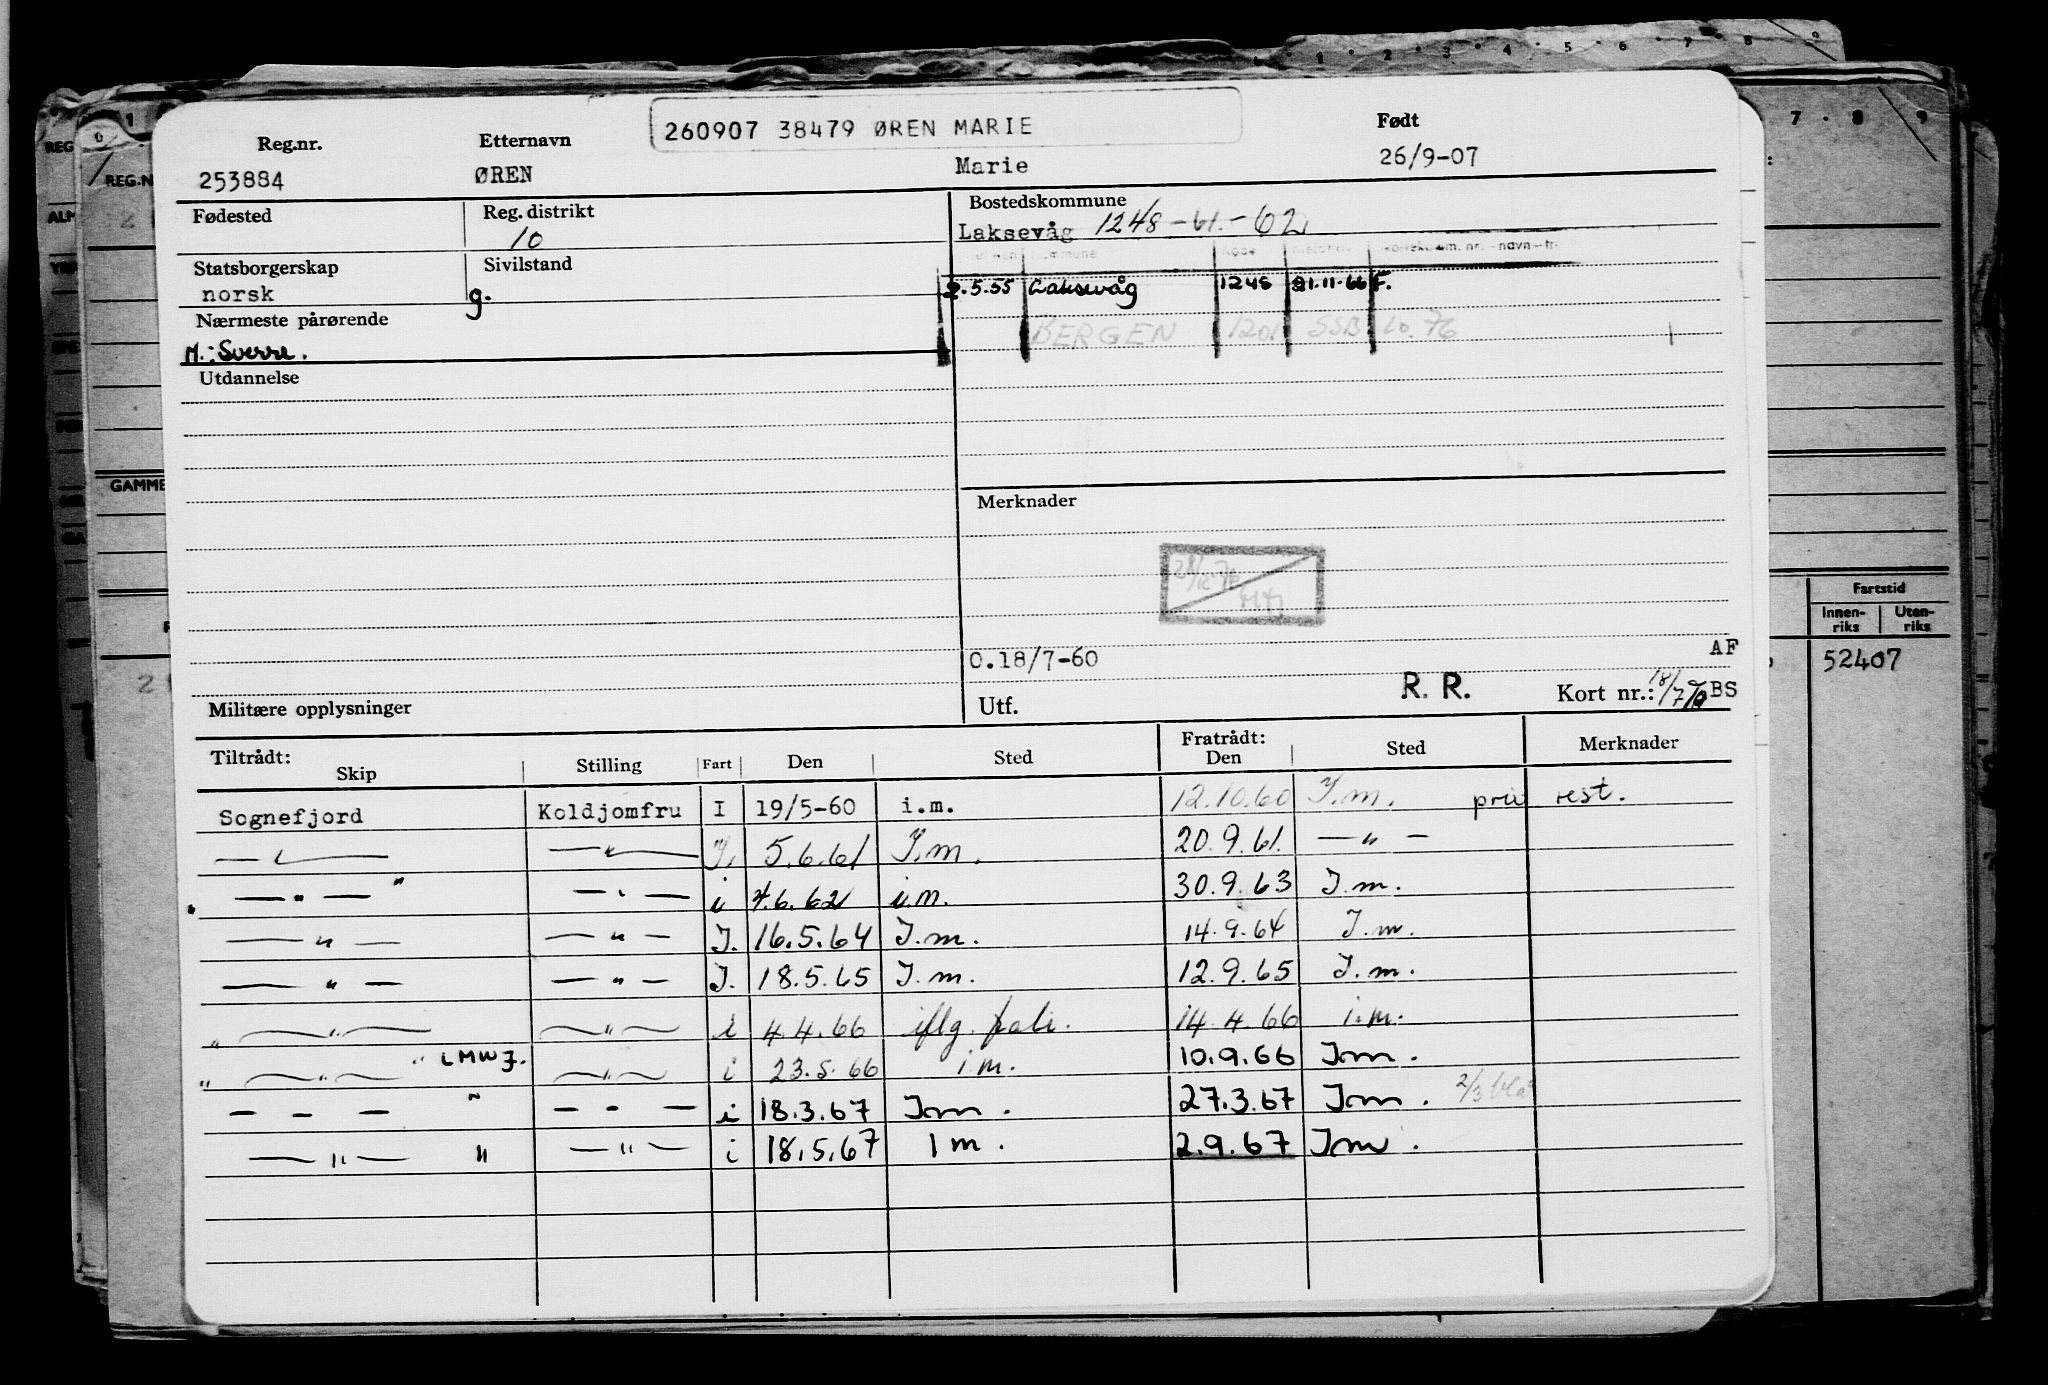 260907 38479 ØREN MARIE
Reg.nr. Etternavn Født
253884 ØREN Marie 26/9-07
Fødested Reg. distrikt Bostedskommune
10 Laksevåg 1248-61.-62
Statsborgerskap Sivilstand
norsk g. 2.5.55 Laksevåg 1248 21.11.66 F.
Nærmeste pårørende BERGEN 1201 SSB 10.76
M.: Sverre.
Utdannelse
Merknader
0.18/7-60 AF
Militære opplysninger Utf. R. R. Kort nr.: 18/7 BS
Tiltrådt: Fratrådt:
Skip Stilling Fart Den Sted Den Sted Merknader
Sognefjord Koldjomfru I 19/5-60 i.m. 12.10.60 I.m. rest.
— " — — " — I. 5.6.61 I.m. 20.9.61. — " —
— " — " — " — i 4.6.62 i.m. 30.9.63 I.m.
— " — — " — I. 16.5.64 I.m. 14.9.64 I.m.
— " — — " — I. 18.5.65 I.m. 12.9.65 I.m.
" — " — — " — i 4.4.66 iflg. 14.4.66 i.m.
" — " — " — " — i 23.5.66 i.m. 10.9.66 Im.
— " — " — " — i 18.3.67 Im. 27.3.67 Im.
— " — " — " — i 18.5.67 Im. 2.9.67 Im.
GAMME
REG.N
Fartstid
Innen-riks Uten-riks
52407